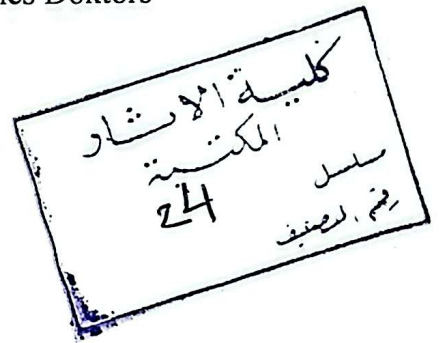 des Doktors
كلية الآثار
المكتبة
24
مسلسل
رقم التصنيف